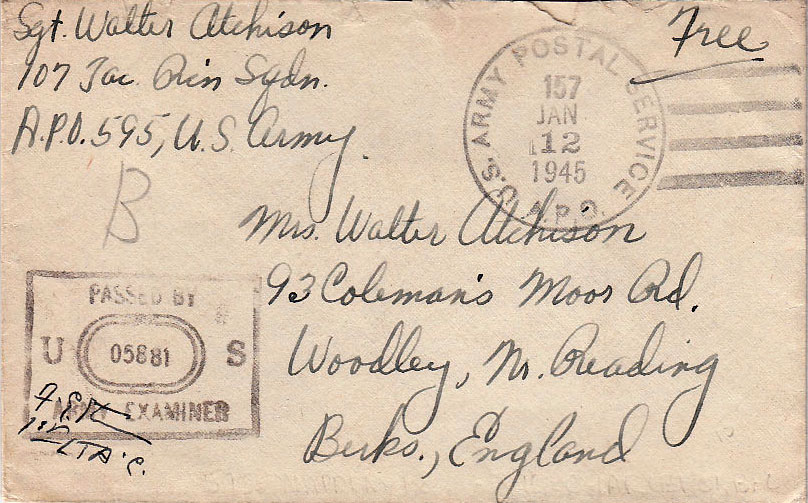 Sgt. Walter Atchison
107 Tac. Rcn Sqdn.
A.P.O. 595, U.S. Army
Free
U.S. ARMY POSTAL SERVICE
157
JAN
12
1945
A.P.O.
B
Mrs. Walter Atchison
93 Coleman's Moor Rd.
Woodley, Nr. Reading
Berks., England
PASSED BY
U 05881 S
ARMY EXAMINER